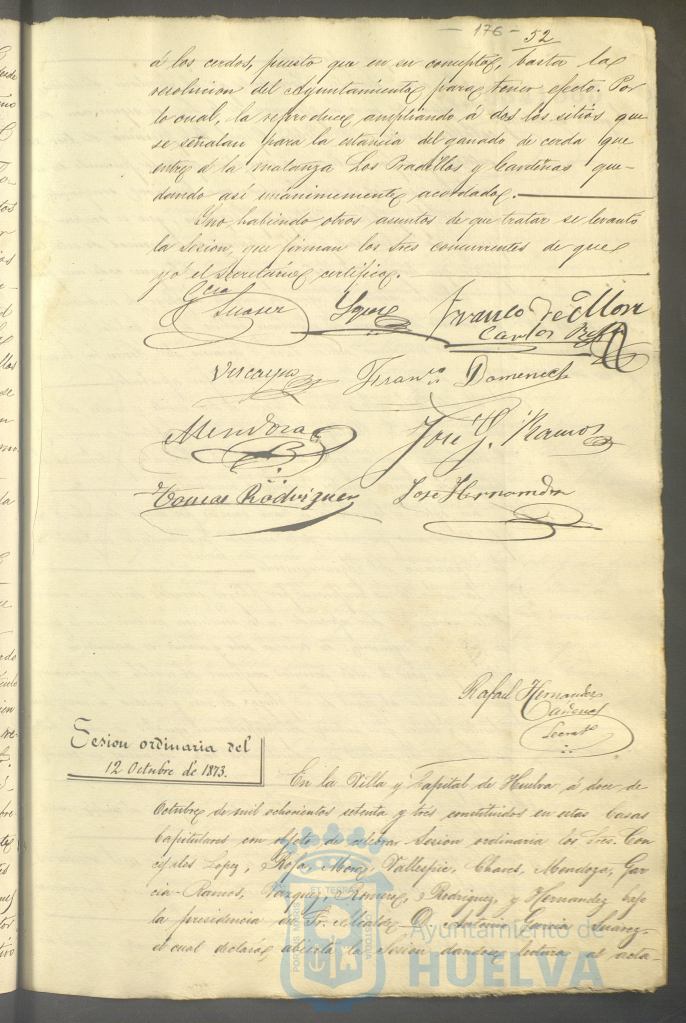 - 176 -
52
á los cerdos, puesto que en su concepto, basta la
resolucion del Ayuntamiento para tener efecto. Por
lo cual, la reproduce ampliando á dos los sitios que
se señalan para la estancia del ganado de cerda que
entre á la matanza Los Pradillos y Cardeñas que-
dando así unánimemente acordado.
Y no habiendo otros asuntos de que tratar se levantó
la Sesion, que firman los Sres concurrentes de que
yo el Secretario certifico.
Gcia Suarez Franco de Mora
Carlos
Vizcayno Franco Domenech
Mendoza José G. Ramos
Tomas Rodriguez José Hernandez
Rafael Hernandez
Secreto
Sesion ordinaria del
12 Octubre de 1873.
En la Villa y Capital de Huelva á doce de
Octubre de mil ochocientos setenta y tres constituidos en estas Casas
Capitulares con objeto de celebrar Sesion ordinaria los Sres. Con-
cejales Lopez, Rofa, Mora, Vallespin, Chaves, Mendoza, Gar-
cia-Ramos, Vazquez, Ramirez, Rodriguez, y Hernandez bajo
la presidencia del Sr. Alcalde D. Antonio Garcia Suarez
el cual declaró abierta la Sesion dandose lectura al acta
PORTUS MARIS ET TERRAE CUSTODIA
Ayuntamiento de
HUELVA